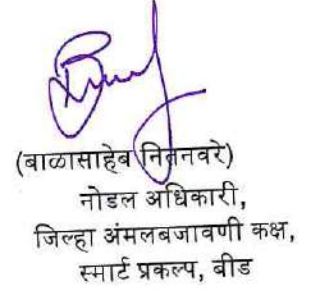 (बाळासाहेब नितनवरे)
नोडल अधिकारी,
जिल्हा अंमलबजावणी कक्ष,
स्मार्ट प्रकल्प, बीड